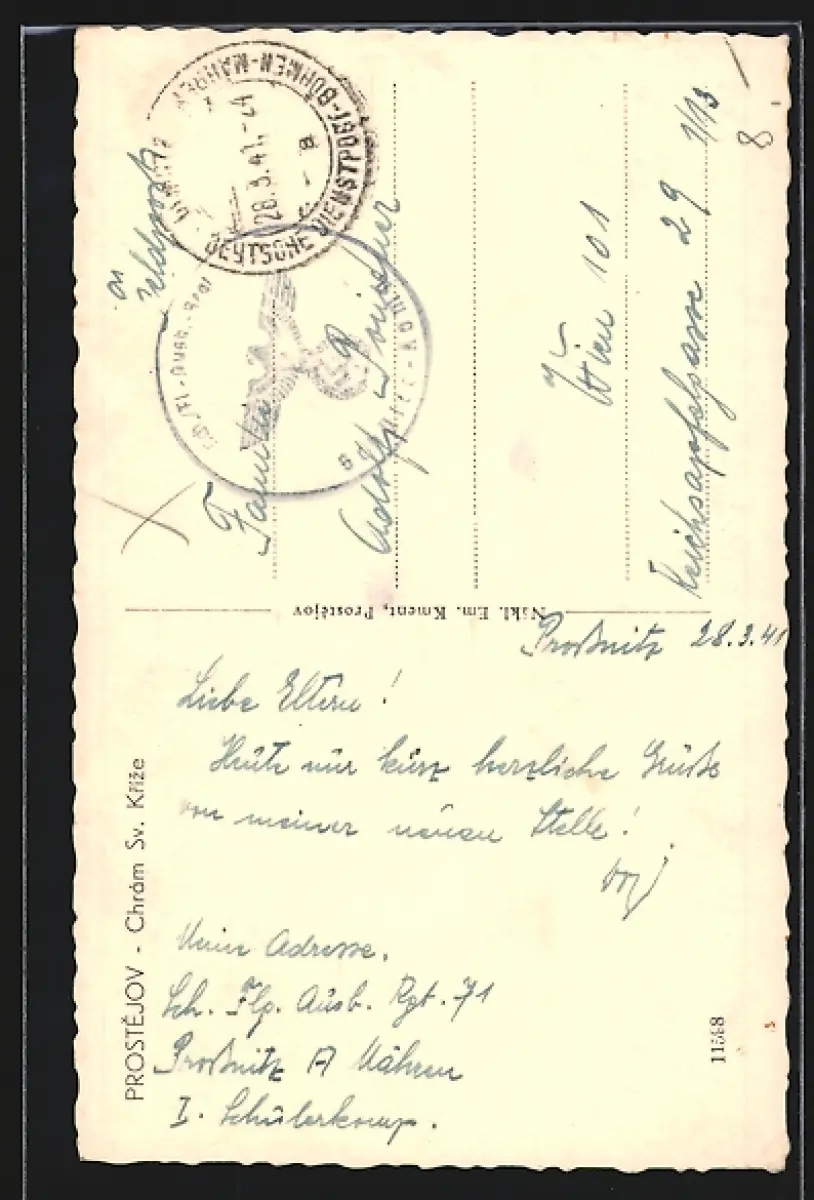 DEUTSCHE DIENSTPOST-BÖHMEN-MÄHREN
28.3.41.-24
a
Feldpost
Familie
Adolf
Wien 101
Reichsapfelgasse 29 1/13
8.
Nákl. Em. Kment, Prostějov
Proßnitz 28.3.41
Liebe Eltern!
Heute nur kurz herzliche Grüße
von meiner neuen Stelle!
Meine Adresse.
Sch. Flg. Ausb. Rgt. 71
Proßnitz A Mähren
I. Schülerkomp.
PROSTĚJOV - Chrám Sv. Kříže
11598